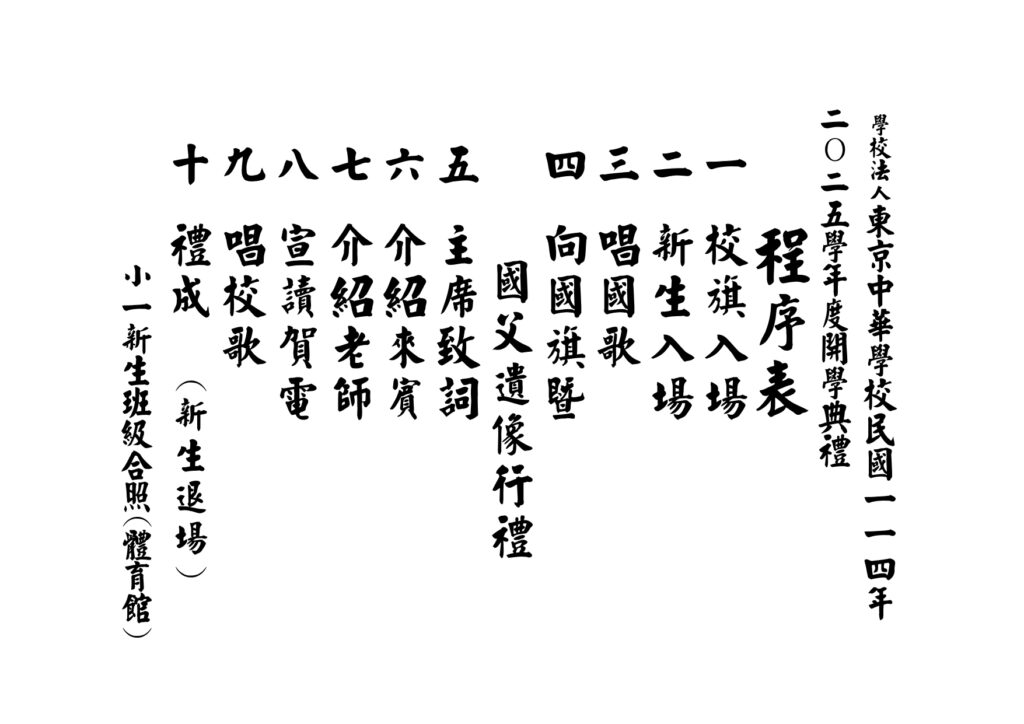 學校法人東京中華學校民國一一四年
二〇二五學年度開學典禮
程序表
一 校旗入場
二 新生入場
三 唱國歌
四 向國旗暨
國父遺像行禮
五 主席致詞
六 介紹來賓
七 介紹老師
八 宣讀賀電
九 唱校歌
十 禮成 (新生退場)
小一新生班級合照(體育館)